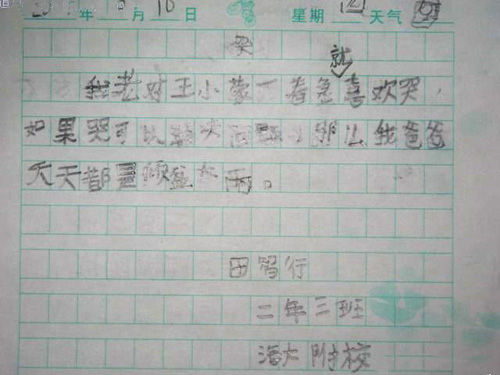 年 月 10 日 星期 天气
哭
就
我老对王小蒙 看爸喜欢哭,
如果哭可以解决问题 那么我爸爸
天天都是倾盆大雨。
田智行
二年三班
海大附校